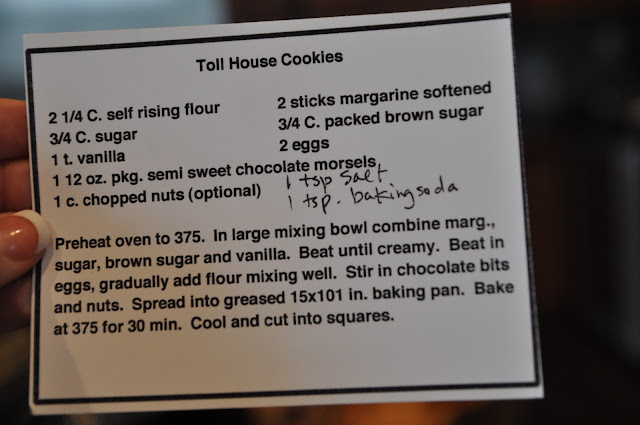 Toll House Cookies
2 1/4 C. self rising flour
2 sticks margarine softened
3/4 C. sugar
3/4 C. packed brown sugar
1 t. vanilla
2 eggs
1 12 oz. pkg. semi sweet chocolate morsels
1 c. chopped nuts (optional)
1 tsp salt
1 tsp. baking soda
Preheat oven to 375. In large mixing bowl combine marg.,
sugar, brown sugar and vanilla. Beat until creamy. Beat in
eggs, gradually add flour mixing well. Stir in chocolate bits
and nuts. Spread into greased 15x101 in. baking pan. Bake
at 375 for 30 min. Cool and cut into squares.